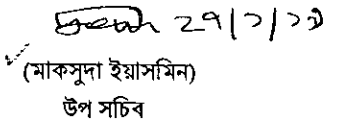 ২৭/১/১৯
(মাকসুদা ইয়াসমিন)
উপ সচিব